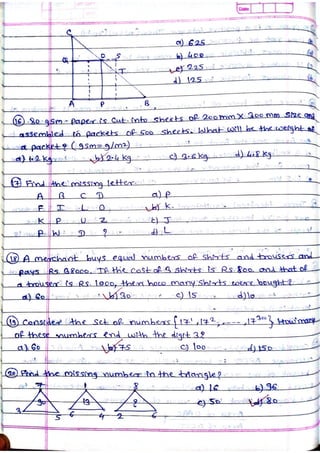 Date
C
a) 625
Q O S b) 400
T c) 225
d) 125
A P B
(16) 80 gsm - paper is cut into sheets of 200mm X 300 mm size and
assembled in packets of 500 sheets. What will be the weight of
a packet? (gsm = g/m²)
a) 1.2 kg b) 2.4 kg c) 3.6 kg d) 4.8 kg
(17) Find the missing letter.
A B C D a) P
F I L O b) K
K P U Z c) J
P W D ? d) L
(18) A merchant buys equal numbers of shirts and trousers and
pays Rs 38000. If the cost of 3 shirts is Rs. 800 and that of
a trouser is Rs 1000, then how many shirts were bought?
a) 60 b) 30 c) 15 d) 10
(19) Consider the set of numbers {17¹, 17², ----, 17³⁰⁰} How many
of these numbers end with the digit 3?
a) 60 b) 75 c) 100 d) 150
(20) Find the missing number in the triangle?
7 1 8 a) 16 b) 36
90 19 ? c) 50 d) 80
3 5 6 4 2 6